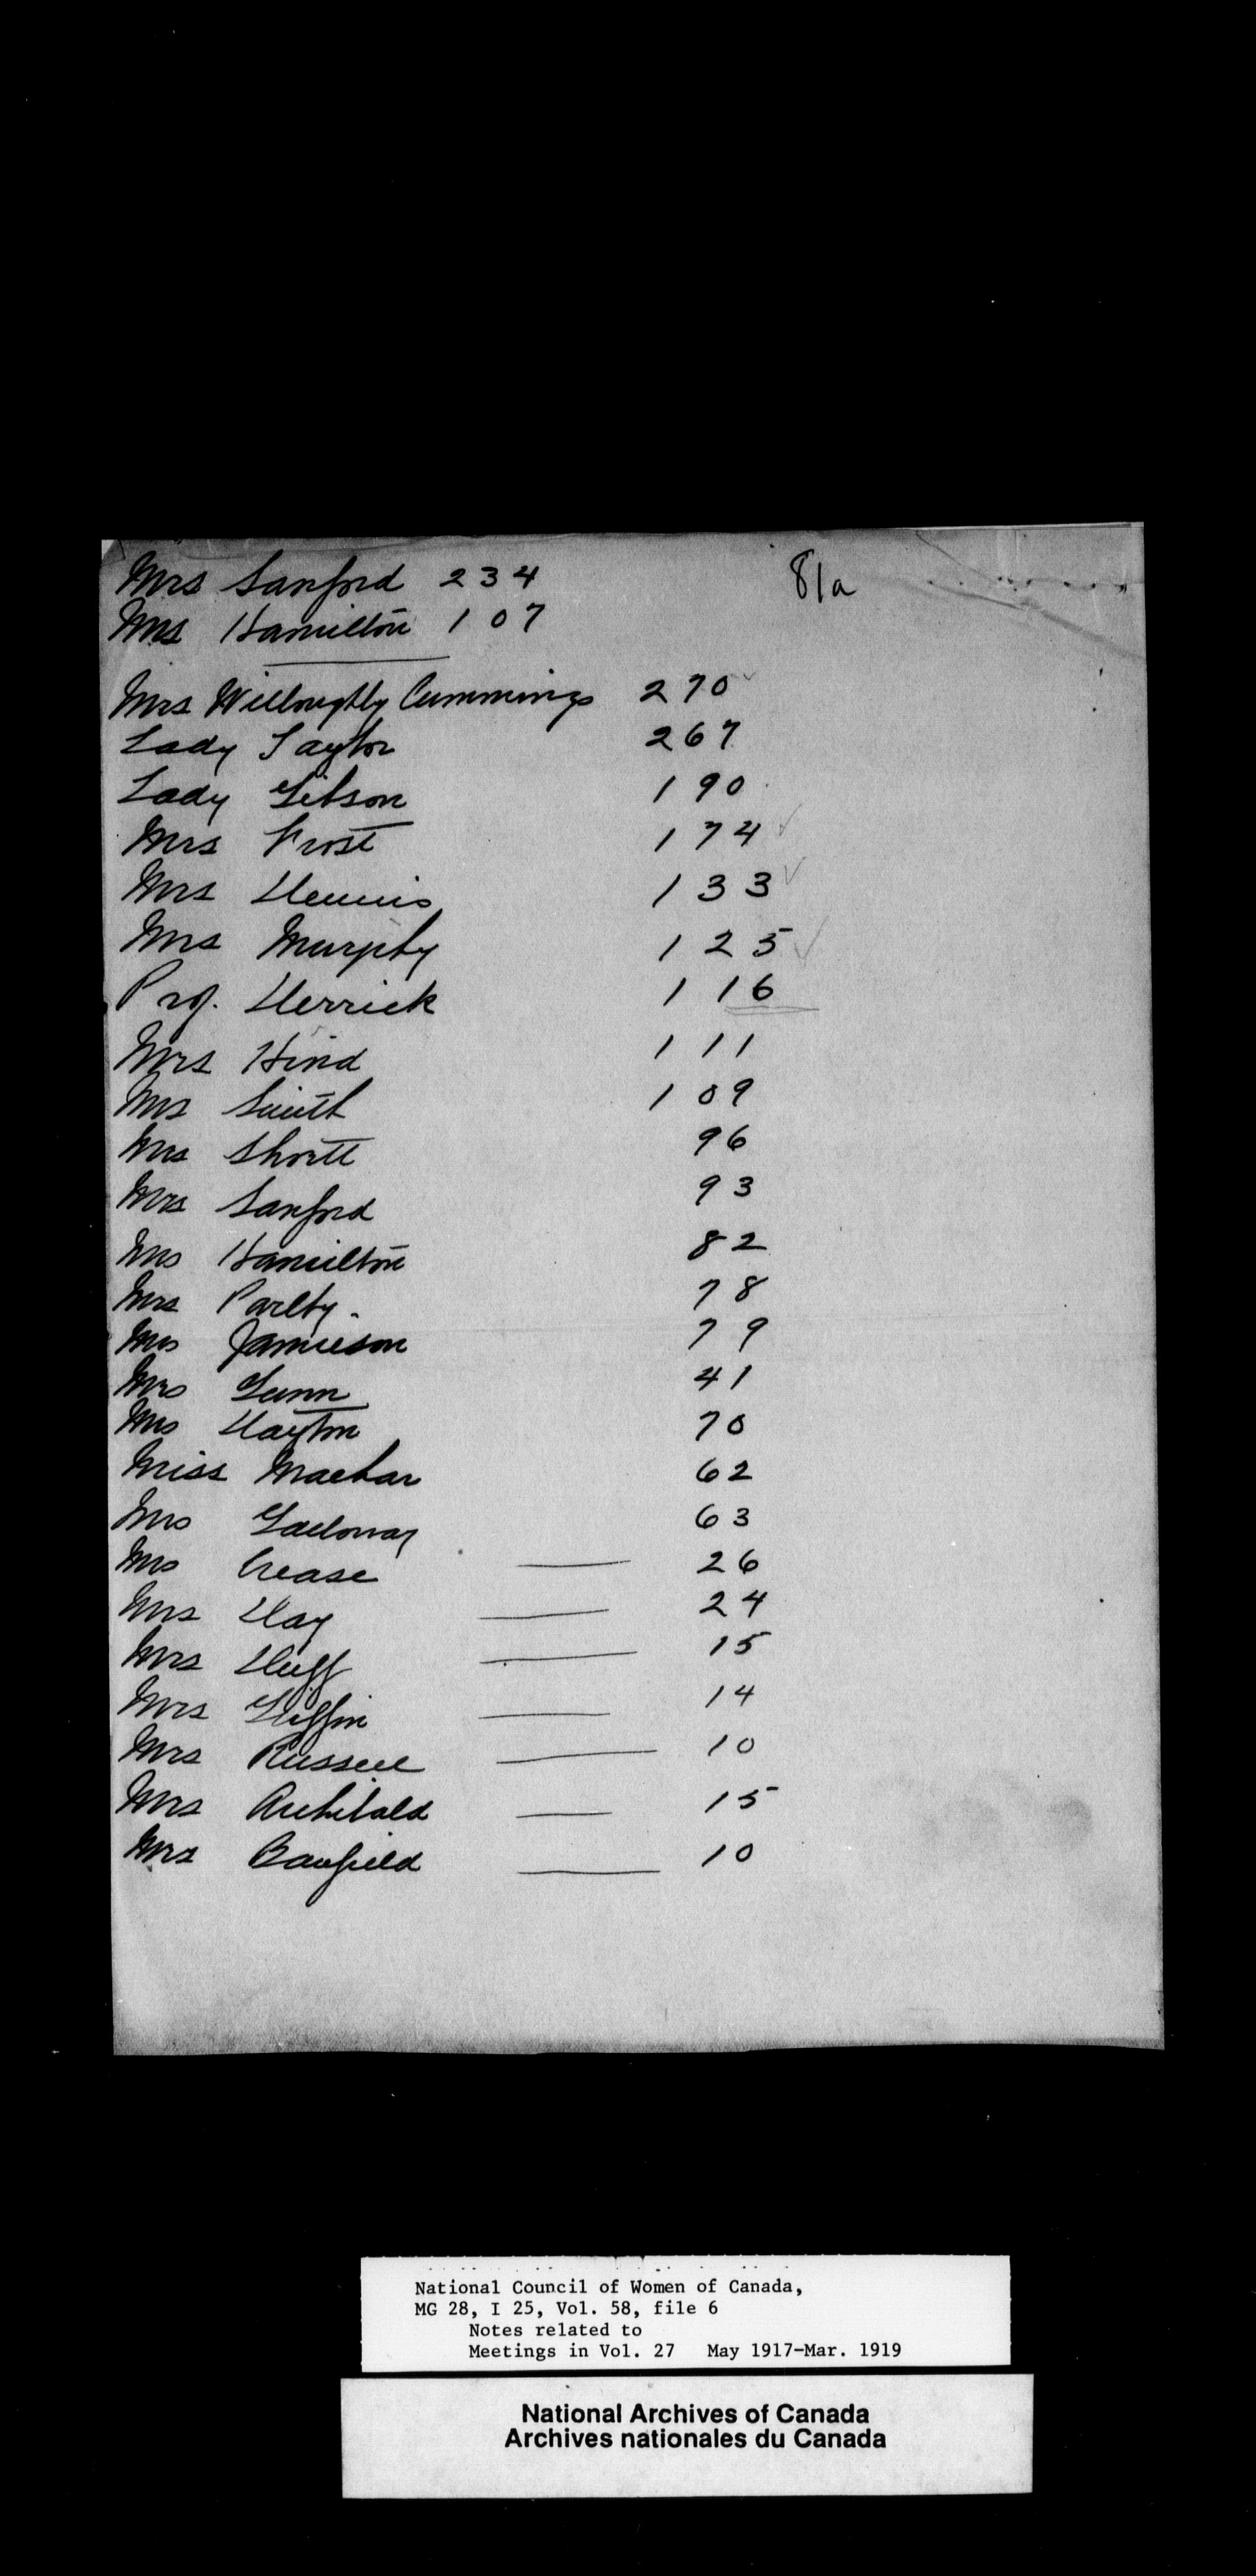 81a
Mrs Sanford 234
Mrs Hamilton 107
Mrs Willoughby Cummings 270
Lady Taylor 267
Lady Gibson 190
Mrs Frost 174
Mrs Dennis 133
Mrs Murphy 125
Prof. Derrick 116
Mrs Hind 111
Mrs Smith 109
Mrs Shortt 96
Mrs Sanford 93
Mrs Hamilton 82
Mrs Parlby. 78
Mrs Jamieson 79
Mrs Gunn 41
Mrs Dayton 70
Miss Machar 62
Mrs Galloway 63
Mrs Crease — 26
Mrs Day — 24
Mrs Duff — 15
Mrs Griffin — 14
Mrs Russell — 10
Mrs Archibald — 15
Mrs Banfield — 10
National Council of Women of Canada,
MG 28, I 25, Vol. 58, file 6
Notes related to
Meetings in Vol. 27 May 1917-Mar. 1919
National Archives of Canada
Archives nationales du Canada